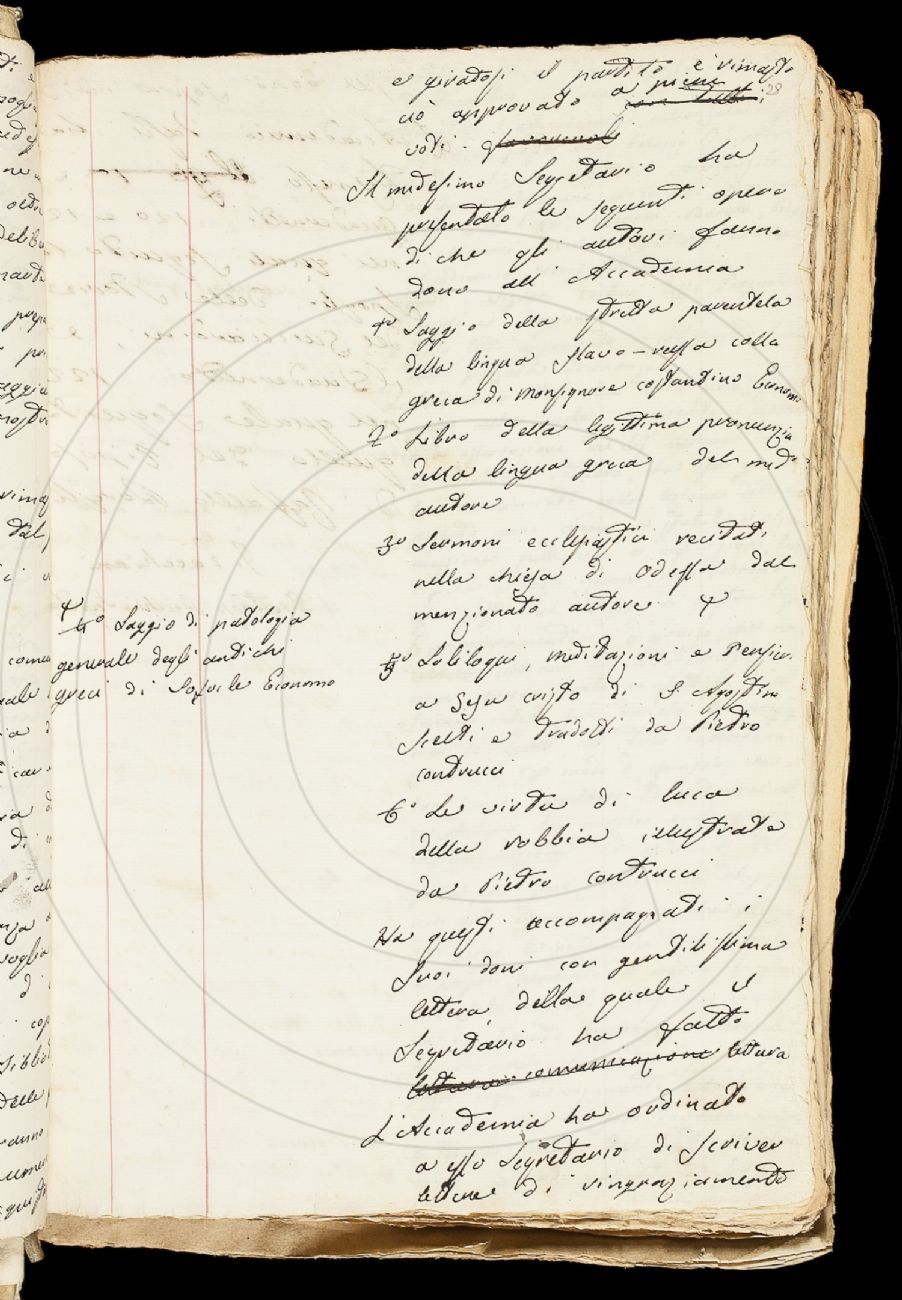 e giratosi il partito è rimasto
ciò approvato a pieni con tutti i
voti. favorevoli
Il medesimo Segretario ha
presentato le seguenti opere
di che gli autori fanno
dono all'Accademia
1° Saggio della stretta parentela
della lingua slavo-russa colla
greca di Monsignore costantino Economo
2° Libro della legittima pronunzia
della lingua greca del med°
autore
3° Sermoni ecclesiastici recitati
nella chiesa di Odessa dal
menzionato autore
4° Saggio di patologia
generale degli antichi
greci di Sofocle Economo
5° Soliloqui, meditazioni e Pensieri
a Gesu cristo di S. Agostino
scelti e tradotti da Pietro
contrucci
6° Le virtu di luca
della robbia illustrate
da Pietro contrucci
Ha questi accompagnati i
suoi doni con gentilissima
lettera, della quale il
Segretario ha fatto
lettura comunicazione lettura
L'Accademia ha ordinato
a esso Segretario di scriver
lettere di ringraziamento